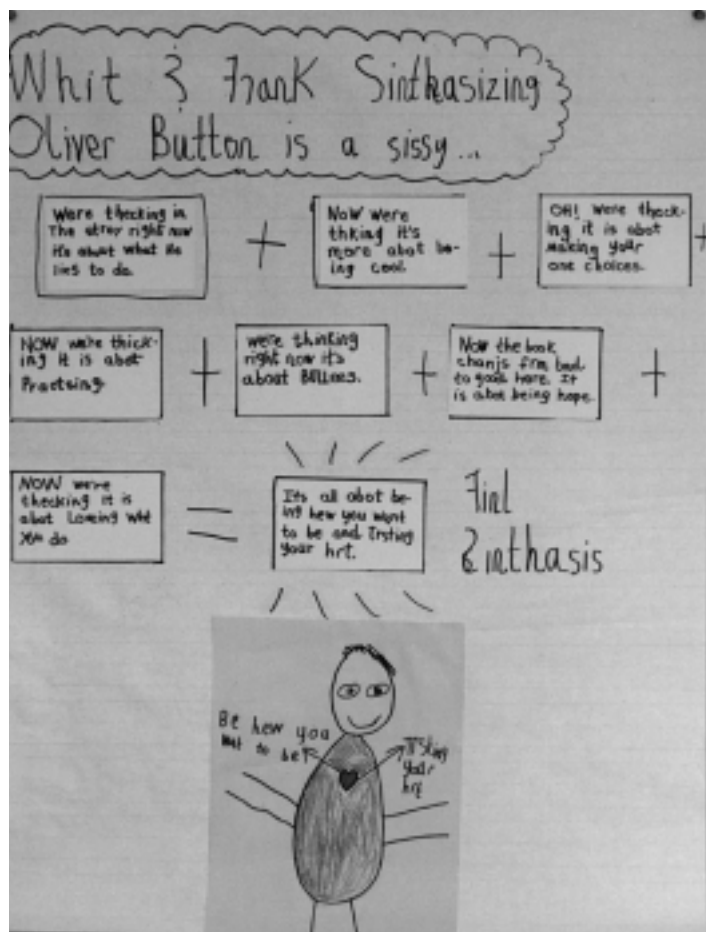 Whit & Frank Sinthasizing
Oliver Button is a sissy...
Were thecking in
The storey right now
it's about what he
lies to do.
+
Now were
thking it's
more abot be-
ing cool.
+
OH! were theck-
ing it is abot
making your
one choices.
+
NOW we're thick-
ing it is abot
Practsing.
+
were thinking
right now it's
about Bullees.
+
Now the book
chanjs frm bad
to good here. It
is abot being hope.
+
NOW we're
checking it is
abot Loweing wht
you do
=
Its all abot be-
ing hew you want
to be and Trsting
your hrt.
Finl
Sinthasis
Be hew you
wat to be
Trsting
your
hrt